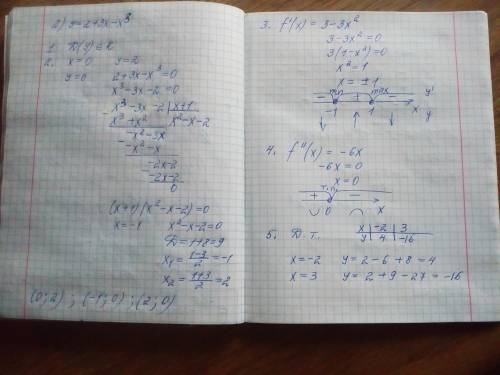 2) y = 2+3x-x³
1. D(y) ∈ R
2. x=0 y=2
y=0 2+3x-x³=0
x³-3x-2=0
x³-3x-2 | x+1
x³+x² | x²-x-2
-x²-3x
-x²-x
-2x-2
-2x-2
0
(x+1)(x²-x-2)=0
x=-1 x²-x-2=0
D=1+8=9
x₁ = (1-3)/2 = -1
x₂ = (1+3)/2 = 2
(0;2) ; (-1;0) ; (2;0)
3. f'(x) = 3-3x²
3-3x²=0
3(1-x²)=0
x²=1
x=±1
min max
- + - y'
-1 1 x y
↓ ↑ ↓
4. f''(x) = -6x
-6x=0
x=0
т.п.
+ -
∪ 0 ∩ x
5. Д.т. x | -2 | 3
y | 4 | -16
x=-2 y=2-6+8=4
x=3 y=2+9-27=-16